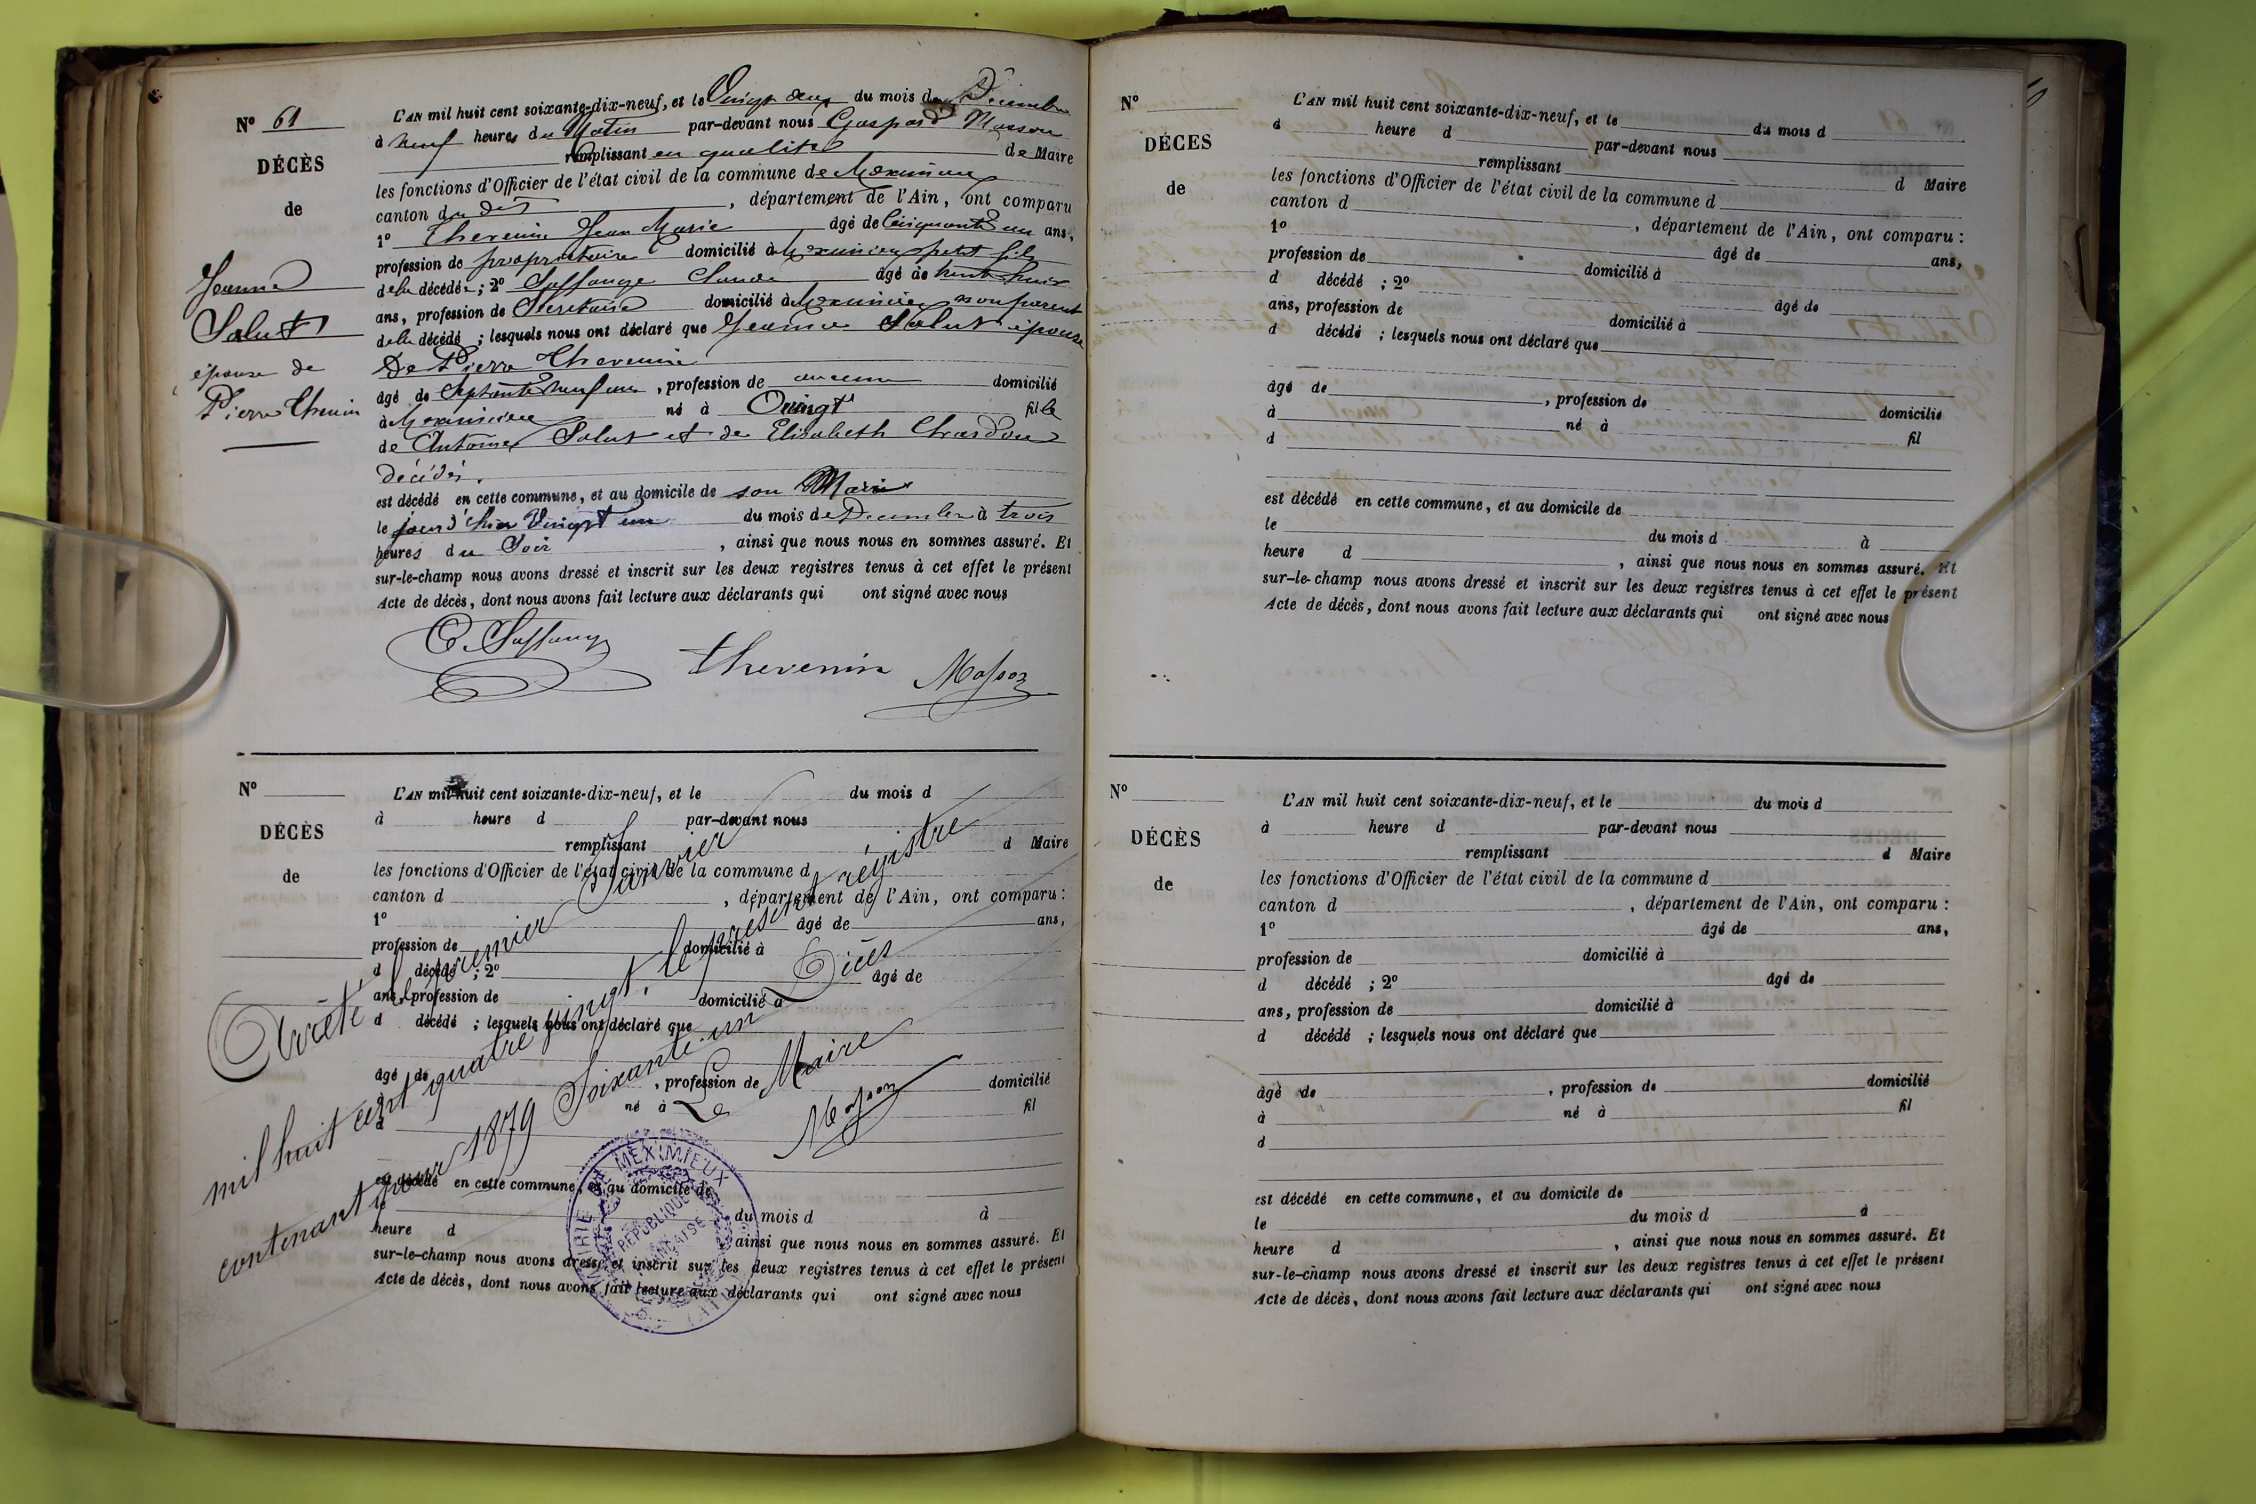 N° 61
DÉCÈS
de
Jeanne
Salut
épouse de
Pierre Thevenin
L'AN mil huit cent soixante-dix-neuf, et le Vingt deux du mois de Décembre
à neuf heures du Matin par-devant nous Gaspard Masson
remplissant en qualité de Maire
les fonctions d'Officier de l'état civil de la commune de Meximieux
canton du dit, département de l'Ain, ont comparu
1° Thevenin Jean Marie âgé de Cinquante un ans,
profession de propriétaire domicilié à Meximieux petit fils
de la décédée ; 2° Saffange Claude âgé de
ans, profession de Secrétaire domicilié à Meximieux non parent
de la décédé ; lesquels nous ont déclaré que Jeanne Salut épouse
De Pierre Thevenin
âgé de Septante neuf ans, profession de aucune domicilié
à Meximieux né à Oingt fille
de Antoine Salut et de Elisabeth Chardon
décédés.
est décédé en cette commune, et au domicile de son Mari
le jour d'hier Vingt un du mois de Décembre à trois
heures du Soir, ainsi que nous nous en sommes assuré. Et
sur-le-champ nous avons dressé et inscrit sur les deux registres tenus à cet effet le présent
Acte de décès, dont nous avons fait lecture aux déclarants qui ont signé avec nous
C. Saffange thevenin Masson
N°
DÉCÈS
de
L'AN mil huit cent soixante-dix-neuf, et le du mois d
à heure d par-devant nous
remplissant d Maire
les fonctions d'Officier de l'état civil de la commune d
canton d , département de l'Ain, ont comparu :
1° âgé de ans,
profession de domicilié à
d décédé ; 2° âgé de
ans, profession de domicilié à
d décédé ; lesquels nous ont déclaré que
âgé de , profession de domicilié
à né à fil
d
est décédé en cette commune, et au domicile de
le du mois d à
heure d , ainsi que nous nous en sommes assuré. Et
sur-le-champ nous avons dressé et inscrit sur les deux registres tenus à cet effet le présent
Acte de décès, dont nous avons fait lecture aux déclarants qui ont signé avec nous
Arrêté le premier Janvier
mil huit cent quatre vingt, le présent régistre
contenant pour 1879 Soixante-un Décès
Le Maire
Masson
MAIRIE DE MEXIMIEUX
RÉPUBLIQUE
FRANÇAISE
(AIN)
N°
DÉCES
de
L'AN mil huit cent soixante-dix-neuf, et le du mois d
à heure d par-devant nous
remplissant d Maire
les fonctions d'Officier de l'état civil de la commune d
canton d , département de l'Ain, ont comparu :
1° âgé de ans,
profession de domicilié à
d décédé ; 2° âgé de
ans, profession de domicilié à
d décédé ; lesquels nous ont déclaré que
âgé de , profession de domicilié
à né à fil
d
est décédé en cette commune, et au domicile de
le du mois d à
heure d , ainsi que nous nous en sommes assuré. Et
sur-le-champ nous avons dressé et inscrit sur les deux registres tenus à cet effet le présent
Acte de décès, dont nous avons fait lecture aux déclarants qui ont signé avec nous
N°
DÉCÈS
de
L'AN mil huit cent soixante-dix-neuf, et le du mois d
à heure d par-devant nous
remplissant d Maire
les fonctions d'Officier de l'état civil de la commune d
canton d , département de l'Ain, ont comparu :
1° âgé de ans,
profession de domicilié à
d décédé ; 2° âgé de
ans, profession de domicilié à
d décédé ; lesquels nous ont déclaré que
âgé de , profession de domicilié
à né à fil
d
est décédé en cette commune, et au domicile de
le du mois d à
heure d , ainsi que nous nous en sommes assuré. Et
sur-le-champ nous avons dressé et inscrit sur les deux registres tenus à cet effet le présent
Acte de décès, dont nous avons fait lecture aux déclarants qui ont signé avec nous